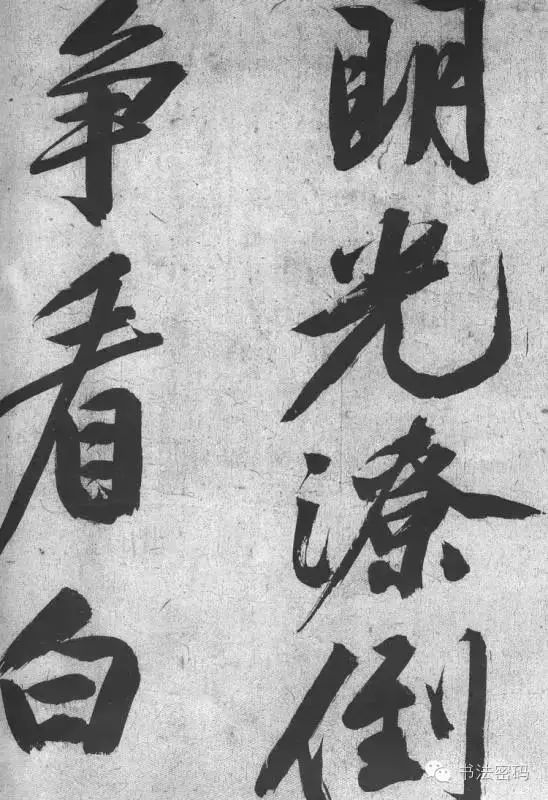 明光潦倒
争看白
书法密码